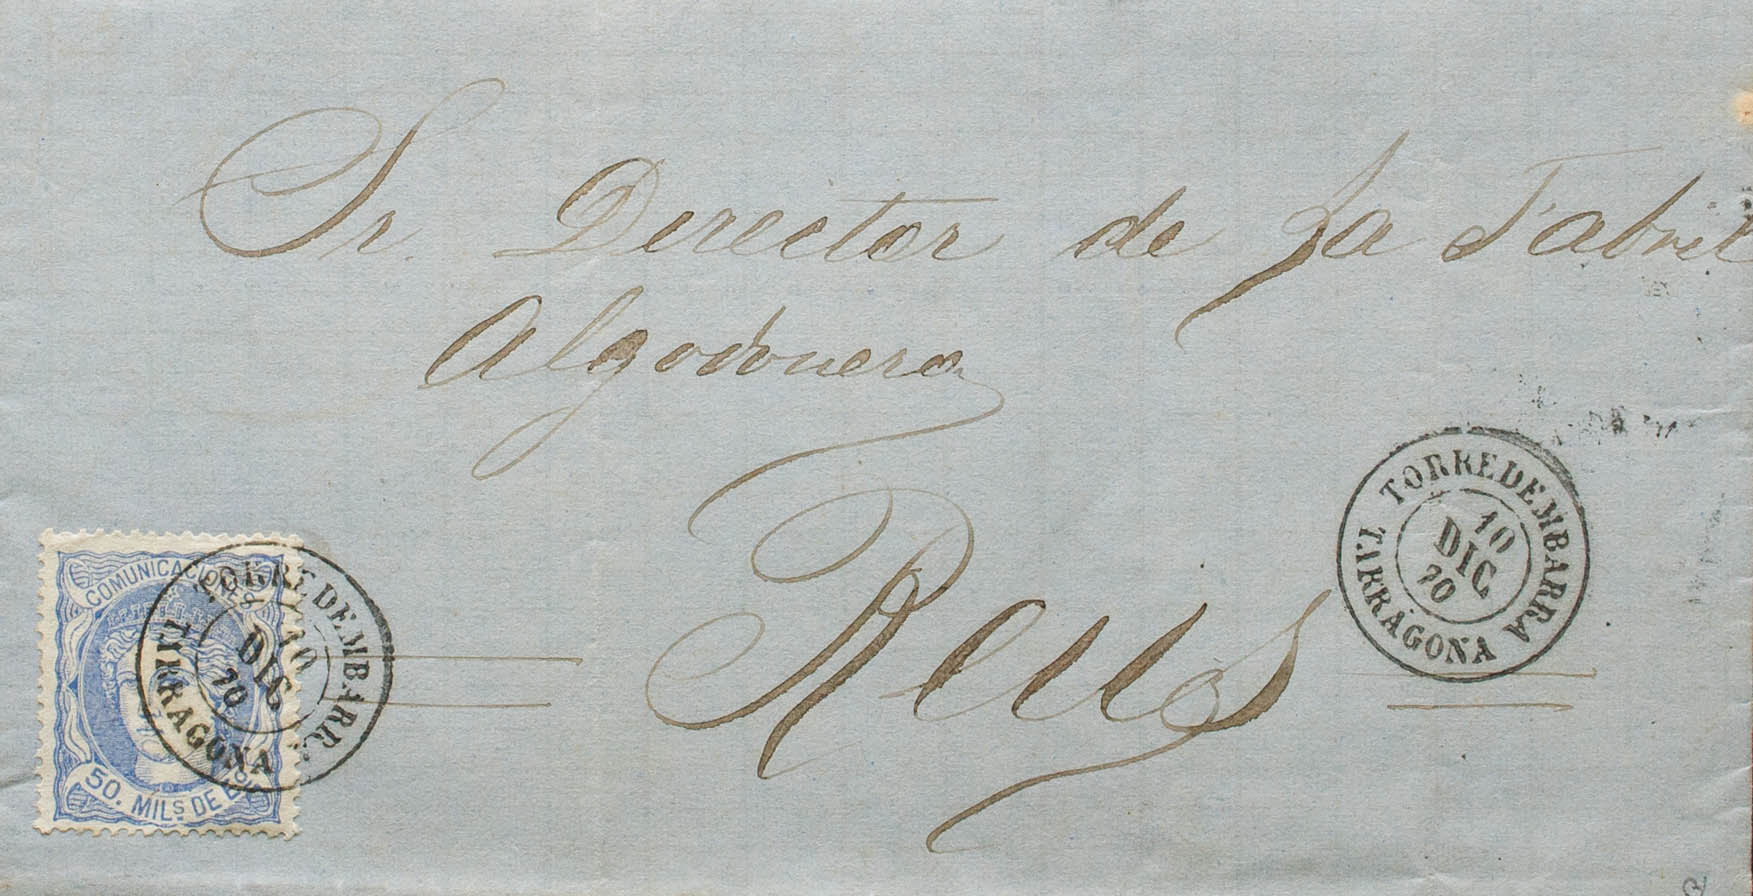 Sr. Director de La Fabril
Algodonera
Reus
TORREDEMBARRA
10
DIC
70
TARRAGONA
COMUNICACIONES
50. MILS DE E
TORREDEMBARRA
10
DIC
70
TARRAGONA